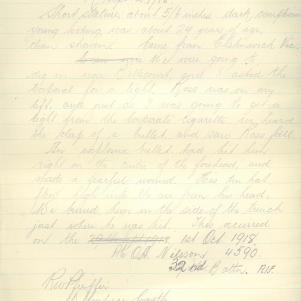 Short stature, about 5/6 inches dark complexion
young looking was about 24 years of age
clean shaven Came from Elsternwick Vic.
We were going to
dig in near Bellecourt, and I asked the
corporal for a light. Ross was on my
left, and just as I was going to get a
light from the corporals cigarette I heard
the slap of a bullet, and saw Ross fell
The explosive bullet had hit him
right in the centre of the forehead, and
made a fearful wound. His tin hat
flew high into the air from his head.
We buried him in the side of the trench
just where he was hit. This occurred
on the 1st Oct 1918.
Pte O.A. 4590
22nd Battn. A.I.F.